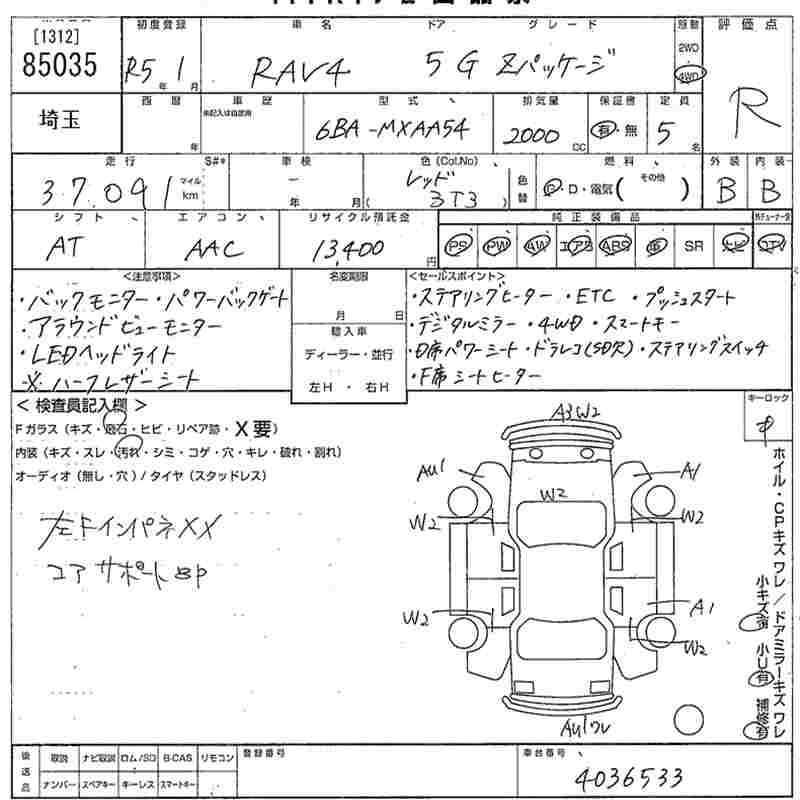 [1312]
85035
初度登録
車名
ドア
グレード
駆動
評価点
R5年1月
RAV4
5 G Zパッケージ
2WD
4WD
R
埼玉
西暦
年
車歴
未記入は自家用
型式
排気量
保証書
定員
6BA-MXAA54
2000cc
有・無
5名
走行
S#*
車検
色(Col.No)
燃料
外装
内装
37,091
マイル
km
ー
年 月
レッド
(3T3)
色替
G・D・電気(その他)
B
B
シフト
エアコン
リサイクル預託金
純正装備品
AT
AAC
13,400円
PS PW AW エアB ABS 革 SR ナビ TV
<注意事項>
・バックモニター・パワーバックゲート
・アラウンドビューモニター
・LEDヘッドライト
・※ハーフレザーシート
名変期限
月 日
輸入車
ディーラー・並行
左H・右H
<セールスポイント>
・ステアリングヒーター・ETC・プッシュスタート
・デジタルミラー・4WD・スマートキー
・D席パワーシート・ドラレコ(SD欠)・ステアリングスイッチ
・F席シートヒーター
<検査員記入欄>
Fガラス(キズ・飛石・ヒビ・リペア跡・X要)
内装(キズ・スレ・汚れ・シミ・コゲ・穴・キレ・破れ・割れ)
オーディオ(無し・穴)/タイヤ(スタッドレス)
左FインパネXX
コアサポートSP
キーロック
A3 W2
AU1
A1
W2
W2
W2
W2
A1
W2
AU1ワレ
ホイル・CPキズワレ/ドアミラーキズワレ
小キズ有 小U有 補修有
後送品
取説 ナビ取説 ロム/SD B-CAS リモコン
ナンバー スペアキー キーレス スマートキー
登録番号
車台番号
4036533